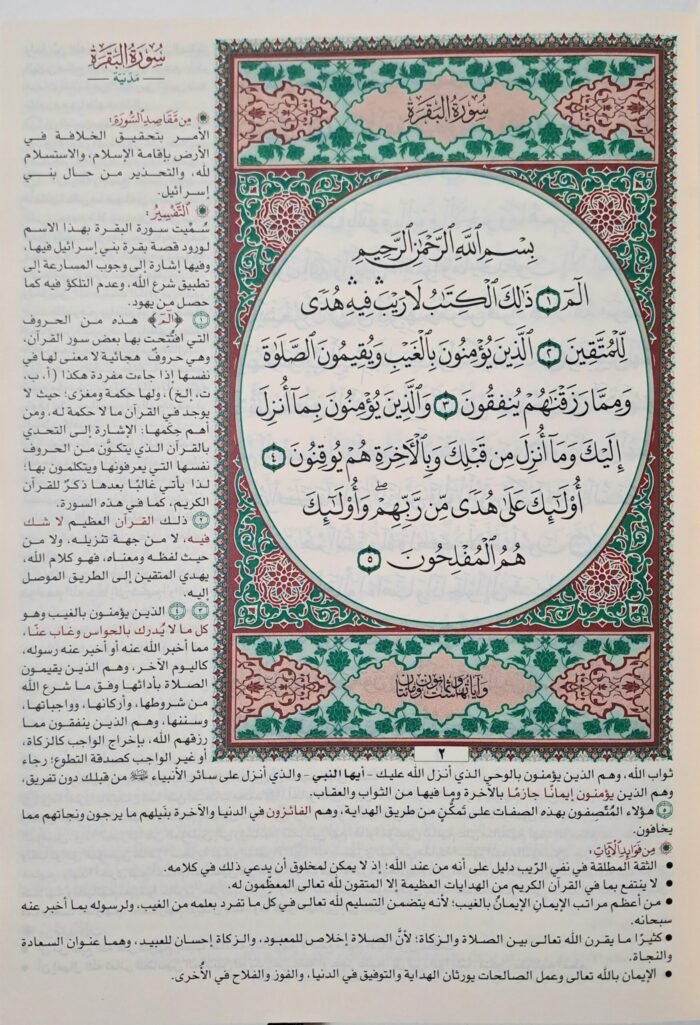 سُورَةُ البَقَرَةِ
مَدَنيّة
سُورَةُ البَقَرَةِ
بِسْمِ ٱللَّهِ ٱلرَّحْمَٰنِ ٱلرَّحِيمِ
الٓمٓ ١ ذَٰلِكَ ٱلْكِتَٰبُ لَا رَيْبَ ۛ فِيهِ ۛ هُدًى
لِّلْمُتَّقِينَ ٢ ٱلَّذِينَ يُؤْمِنُونَ بِٱلْغَيْبِ وَيُقِيمُونَ ٱلصَّلَوٰةَ
وَمِمَّا رَزَقْنَٰهُمْ يُنفِقُونَ ٣ وَٱلَّذِينَ يُؤْمِنُونَ بِمَآ أُنزِلَ
إِلَيْكَ وَمَآ أُنزِلَ مِن قَبْلِكَ وَبِٱلْأَخِرَةِ هُمْ يُوقِنُونَ ٤
أُوْلَٰٓئِكَ عَلَىٰ هُدًى مِّن رَّبِّهِمْ ۖ وَأُوْلَٰٓئِكَ
هُمُ ٱلْمُفْلِحُونَ ٥
٢
مِن مَّقَاصِدِ السُّورَةِ:
الأمر بتحقيق الخلافة في
الأرض بإقامة الإسلام، والاستسلام
لله، والتحذير من حال بني
إسرائيل.
التَّفْسِيرُ:
سُمِّيت سورة البقرة بهذا الاسم
لورود قصة بقرة بني إسرائيل فيها،
وفيها إشارة إلى وجوب المسارعة إلى
تطبيق شرع الله، وعدم التلكؤ فيه كما
حصل من يهود.
١ ﴿الٓمٓ﴾ هذه من الحروف
التي افتُتحت بها بعض سور القرآن،
وهي حروف هجائية لا معنى لها في
نفسها إذا جاءت مفردة هكذا (أ، ب،
ت، إلخ)، ولها حكمة ومغزى؛ حيث لا
يوجد في القرآن ما لا حكمة له، ومن
أهم حِكَمها: الإشارة إلى التحدي
بالقرآن الذي يتكوَّن من الحروف
نفسها التي يعرفونها ويتكلمون بها؛
لذا يأتي غالبًا بعدها ذكرٌ للقرآن
الكريم، كما في هذه السورة.
٢ ذلك القرآن العظيم لا شك
فيه، لا من جهة تنزيله، ولا من
حيث لفظه ومعناه، فهو كلام الله،
يهدي المتقين إلى الطريق الموصل
إليه.
٣ ٤ الذين يؤمنون بالغيب وهو
كل ما لا يُدرك بالحواس وغاب عنّا،
مما أخبر الله عنه أو أخبر عنه رسوله،
كاليوم الآخر، وهم الذين يقيمون
الصلاة بأدائها وفق ما شرع الله
من شروطها، وأركانها، وواجباتها،
وسننها، وهم الذين ينفقون مما
رزقهم الله، بإخراج الواجب كالزكاة،
أو غير الواجب كصدقة التطوع؛ رجاء
ثواب الله، وهم الذين يؤمنون بالوحي الذي أنزل الله عليك - أيها النبي - والذي أنزل على سائر الأنبياء ﷺ من قبلك دون تفريق،
وهم الذين يؤمنون إيمانًا جازمًا بالآخرة وما فيها من الثواب والعقاب.
٥ هؤلاء المُتّصِفون بهذه الصفات على تَمكُّنٍ من طريق الهداية، وهم الفائزون في الدنيا والآخرة بنيلهم ما يرجون ونجاتهم مما
يخافون.
مِن فَوَائِدِ الآيَاتِ:
• الثقة المطلقة في نفي الرّيب دليل على أنه من عند الله؛ إذ لا يمكن لمخلوق أن يدعي ذلك في كلامه.
• لا ينتفع بما في القرآن الكريم من الهدايات العظيمة إلا المتقون لله تعالى المعظِّمون له.
• من أعظم مراتب الإيمانِ الإيمانُ بالغيب؛ لأنه يتضمن التسليم لله تعالى في كل ما تفرد بعلمه من الغيب، ولرسوله بما أخبر عنه
سبحانه.
• كثيرًا ما يقرن الله تعالى بين الصلاة والزكاة؛ لأنَّ الصلاة إخلاص للمعبود، والزكاة إحسان للعبيد، وهما عنوان السعادة
والنجاة.
• الإيمان بالله تعالى وعمل الصالحات يورثان الهداية والتوفيق في الدنيا، والفوز والفلاح في الأُخرى.